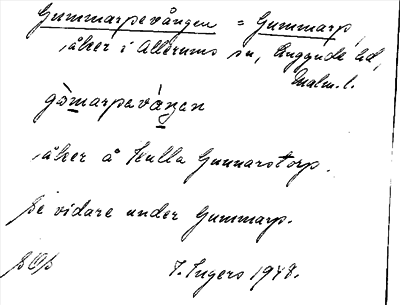 Gummarpevången = Gummarp,
åker i Allerums sn, Luggude hd,
Malm. l.
gòmarpaváŋen
åker å Kulla Gunnarstorp.
Se vidare under Gummarp.
7. Ingers 1948.